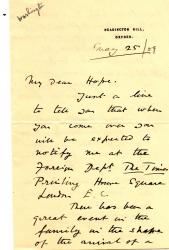 Worlington
HEADINGTON HILL,
OXFORD.
May 25/09
My Dear Hope.
Just a line
to tell you that when
you come over you
will be expected to
notify me at the
Foreign Dept. The Times
Printing House Square
London E.C.
There has been a
great event in the
family in the shape
of the arrival of a